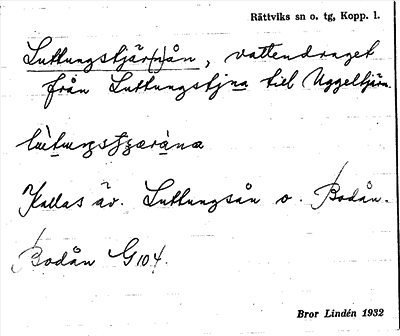 Rättviks sn o. tg, Kopp. l.
Luttungstjär(n)ån, vattendraget
från Luttungstjna till Uggeltjärn.
Kallas äv. Luttungsån o. Bodån.
Bodån G104.
Bror Lindén 1932